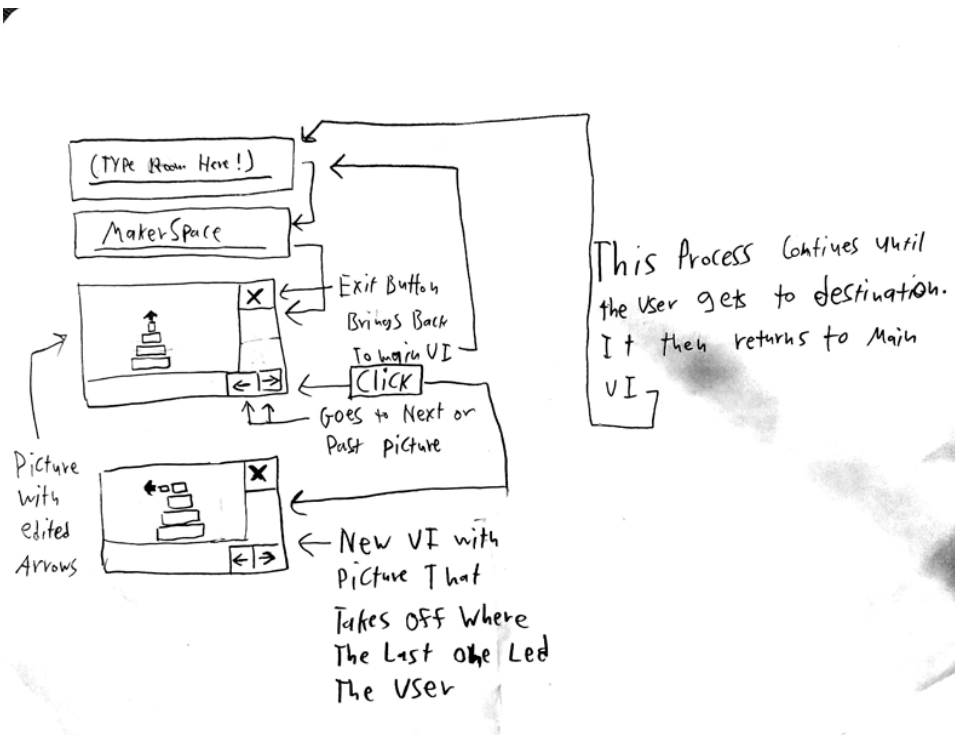 (TYPE Room Here!)
MakerSpace
X
Exit Button
Brings Back
To main UI
← →
Click
Goes to Next or
Past picture
Picture
with
edited
Arrows
X
← →
New UI with
Picture That
Takes off Where
The Last one Led
The User
This Process Contines until
the User gets to destination.
It then returns to Main
UI